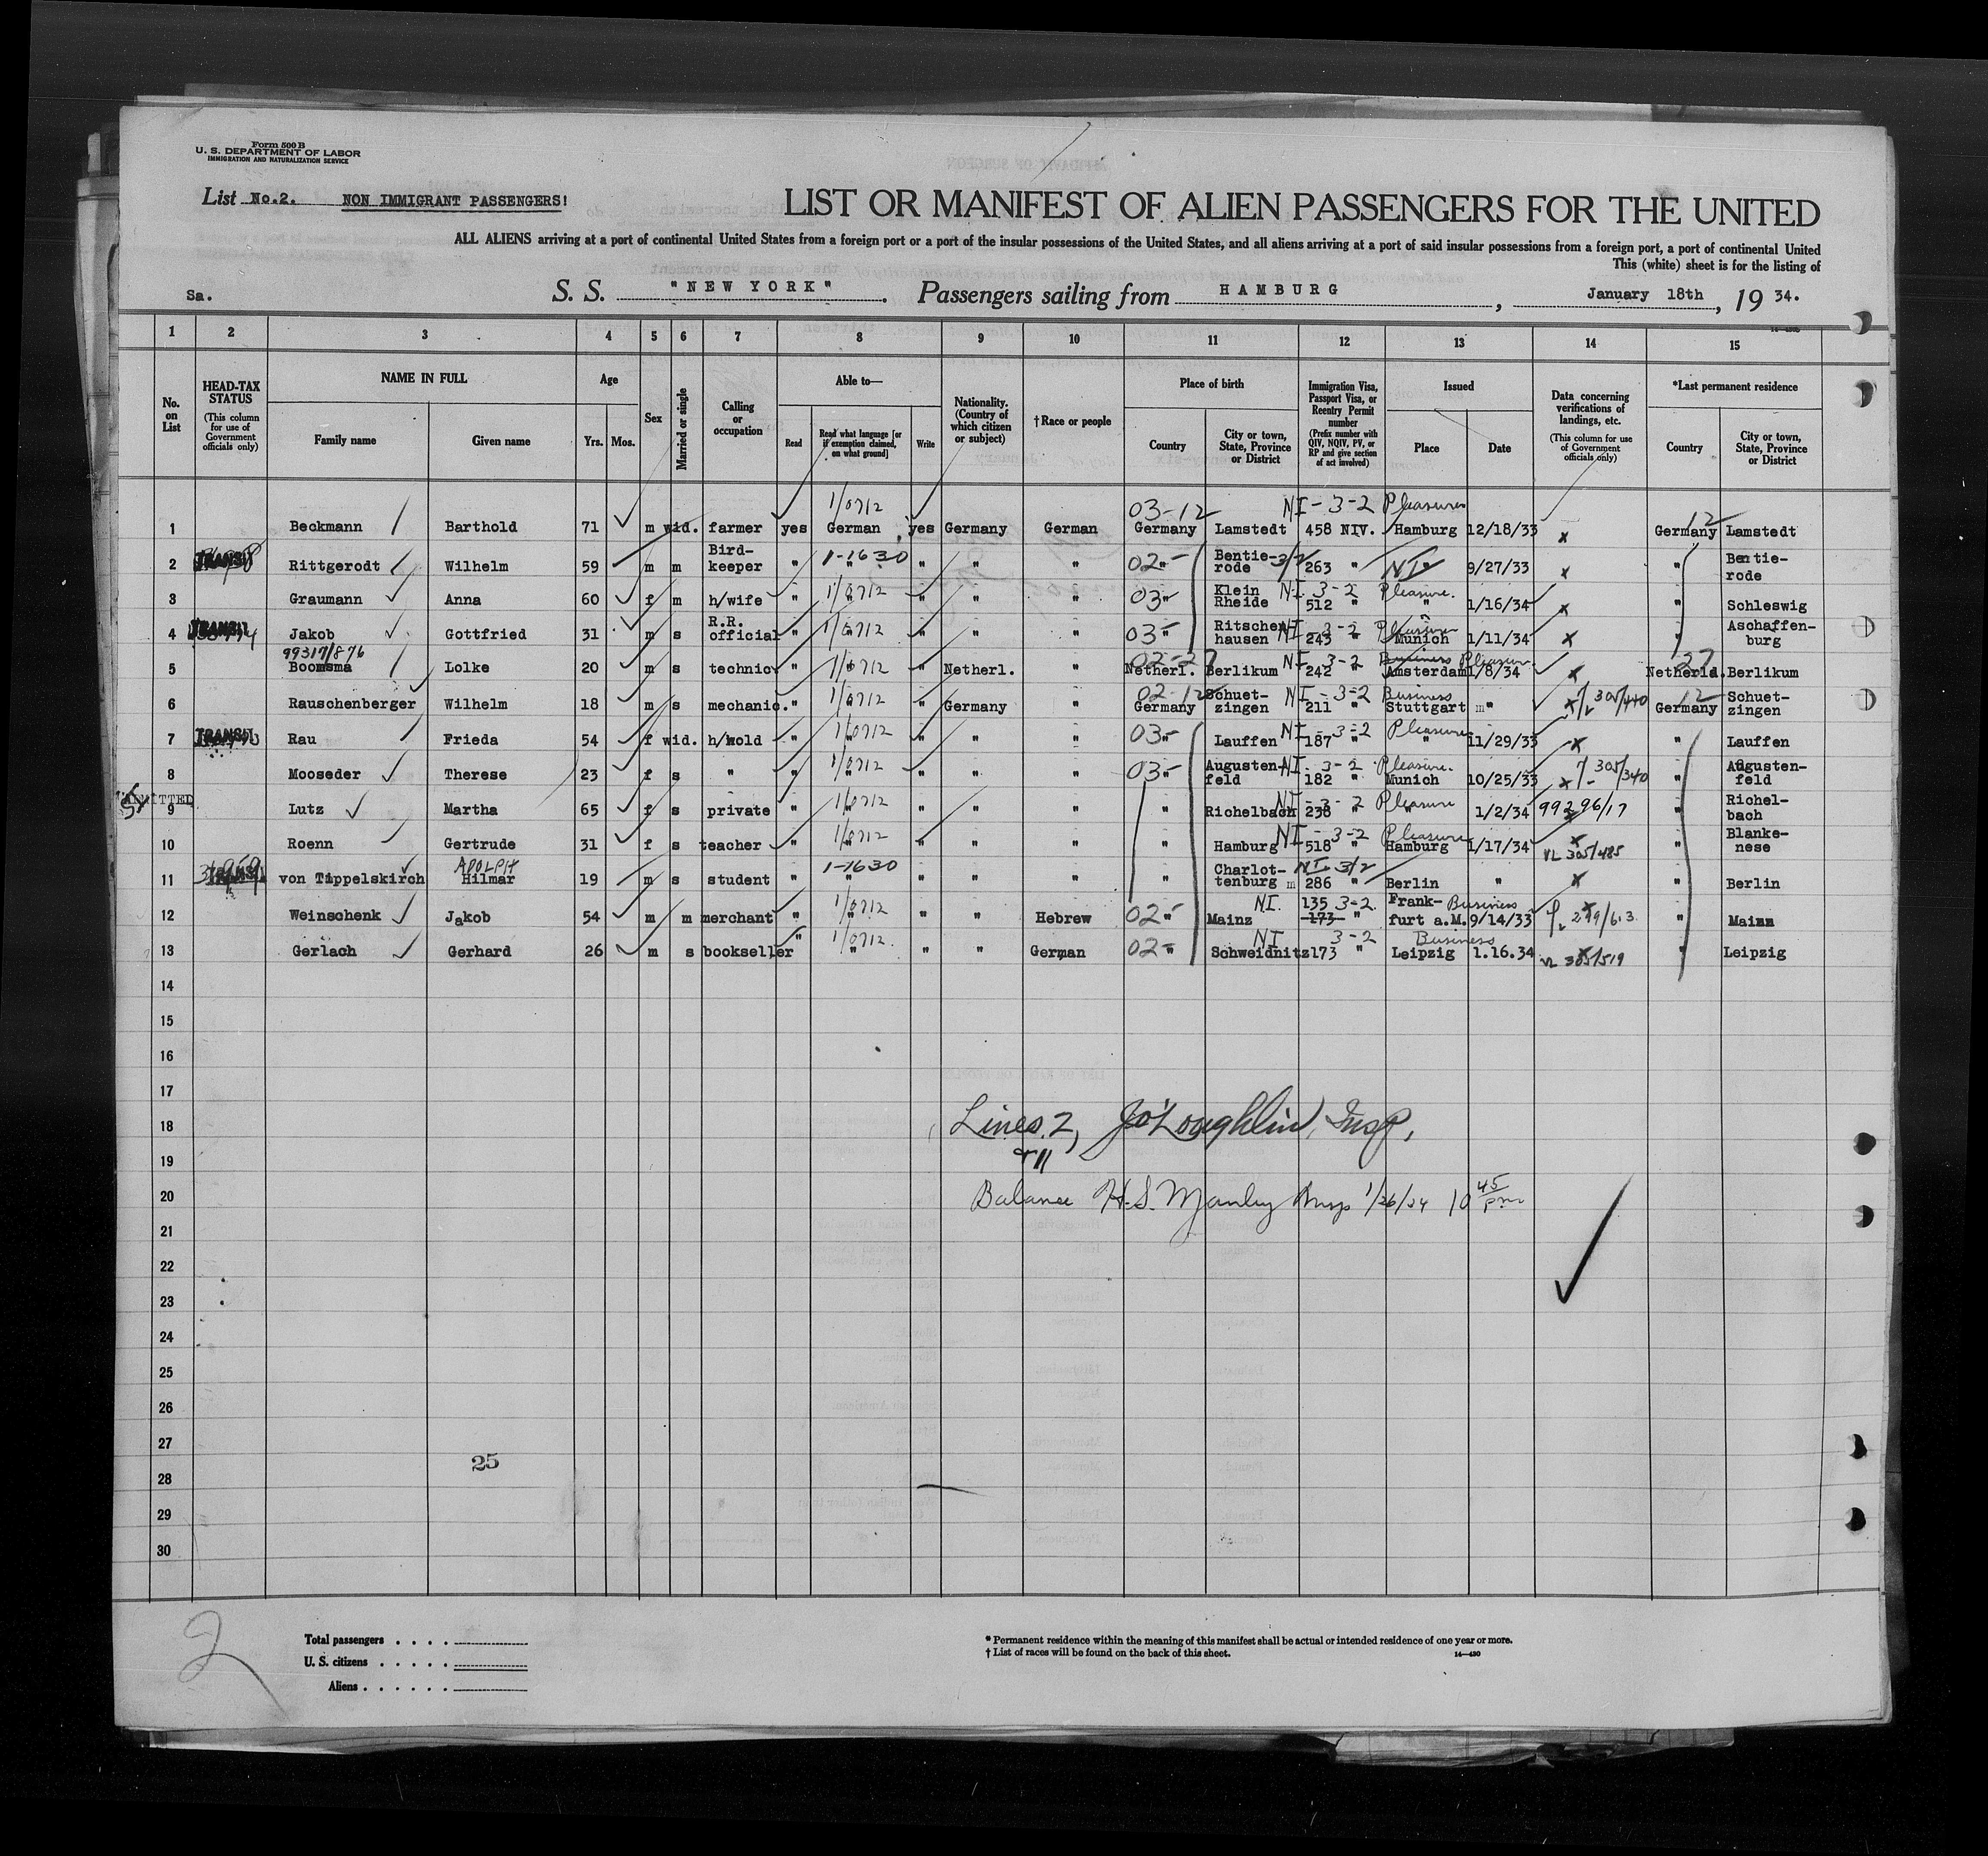 Form 500 B
U. S. DEPARTMENT OF LABOR
IMMIGRATION AND NATURALIZATION SERVICE
List No.2. NON IMMIGRANT PASSENGERS!
LIST OR MANIFEST OF ALIEN PASSENGERS FOR THE UNITED
ALL ALIENS arriving at a port of continental United States from a foreign port or a port of the insular possessions of the United States, and all aliens arriving at a port of said insular possessions from a foreign port, a port of continental United
This (white) sheet is for the listing of
Sa. S. S. "NEW YORK". Passengers sailing from HAMBURG, January 18th, 19 34.
1 2 3 4 5 6 7 8 9 10 11 12 13 14 15
No. on List
HEAD-TAX STATUS (This column for use of Government officials only)
NAME IN FULL
Family name Given name
Age Yrs. Mos.
Sex
Married or single
Calling or occupation
Able to— Read Read what language [or if exemption claimed, on what ground] Write
Nationality. (Country of which citizen or subject)
† Race or people
Place of birth Country City or town, State, Province or District
Immigration Visa, Passport Visa, or Reentry Permit number (Prefix number with QIV, NQIV, PV, or RP and give section of act involved)
Issued Place Date
Data concerning verifications of landings, etc. (This column for use of Government officials only)
*Last permanent residence Country City or town, State, Province or District
1/0712 03-12 NI-3-2 Pleasure 12
1 Beckmann Barthold 71 m wid. farmer yes German yes Germany German Germany Lamstedt 458 NIV. Hamburg 12/18/33 x Germany Lamstedt
2 TRANSIT Rittgerodt Wilhelm 59 m m Bird-keeper " 1-1630 " " " " 02- " Bentie-rode 3/2 263 " NI 9/27/33 x " Bentie-rode
3 Graumann Anna 60 f m h/wife " 1/0712 " " " " 03- " Klein Rheide NI 3-2 512 " Pleasure. " 1/16/34 x " Schleswig
4 TRANSIT Jakob Gottfried 31 m s R.R. official " 1/0712 " " " " 03- " Ritschen hausen NI 3-2 243 " Pleasure Munich 1/11/34 x " Aschaffen-burg
99317/876
5 Boomsma Lolke 20 m s technic. " 1/0712 " " Netherl. " 02-27 Netherl. Berlikum NI 3-2 242 " Business Pleasure Amsterdam 1/8/34 x 27 Netherld. Berlikum
6 Rauschenberger Wilhelm 18 m s mechanic. " 1/0712 " " Germany " 02-12 Germany Schuet-zingen NI-3-2 211 " Business Stuttgart " x 305/440 12 Germany Schuet-zingen
7 TRANSIT Rau Frieda 54 f wid. h/hold " 1/0712 " " " " 03- " Lauffen NI-3-2 187 " Pleasure " 11/29/33 x " Lauffen
8 Mooseder Therese 23 f s " " 1/0712 " " " " 03- " Augusten-feld NI-3-2 182 " Pleasure. Munich 10/25/33 x 305/340 " Augusten-feld
ADMITTED
9 Lutz Martha 65 f s private " 1/0712 " " " " " Richelbach NI-3-2 238 " Pleasure " 1/2/34 99296/17 " Richel-bach
10 Roenn Gertrude 31 f s teacher " 1/0712 " " " " " Hamburg NI-3-2 518 " Pleasure Hamburg 1/17/34 x VL 305/485 " Blanke-nese
ADOLPH
11 von Tippelskirch Hilmar 19 m s student " 1-1630 " " " " " Charlot-tenburg NI 3/2 286 " Berlin " x " Berlin
12 Weinschenk Jakob 54 m m merchant " 1/0712 " " " Hebrew 02- " Mainz NI. 135 3-2 173 " Frank-furt a.M. Business 9/14/33 x 299/613 " Mainz
13 Gerlach Gerhard 26 m s bookseller " 1/0712 " " " German 02- " Schweidnitz NI 3-2 173 " Business Leipzig 1.16.34 x VL 305/519 " Leipzig
14
15
16
17
18 Lines 2, J O'Loughlin, Insp,
& 11
19
20 Balance H.S. Manley Insp 1/26/34 10 45 pm
21
22
23
24
25
26
27
25
28
29
30
2
Total passengers . . . .
U. S. citizens . . . . .
Aliens . . . . . .
* Permanent residence within the meaning of this manifest shall be actual or intended residence of one year or more.
† List of races will be found on the back of this sheet.
14—430